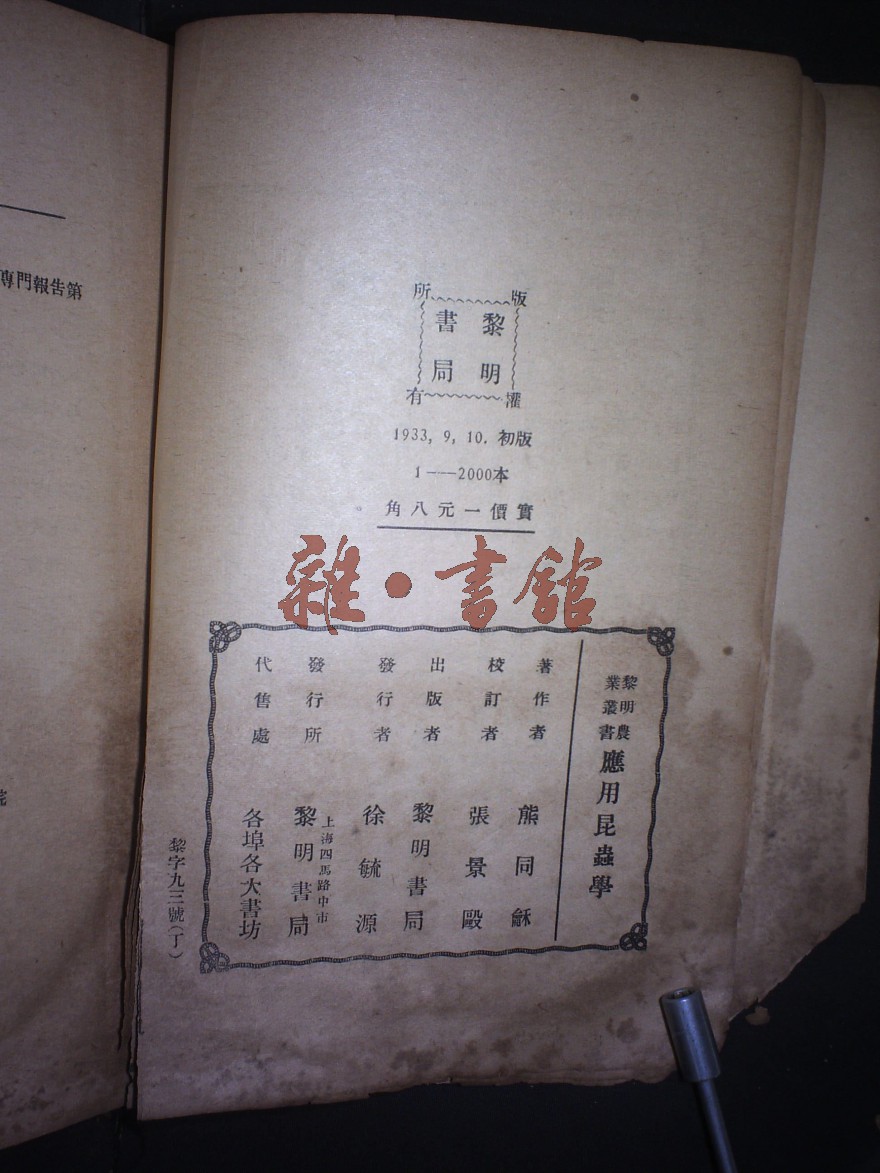 專門報告第
院
版
權
所
有
黎明
書局
1933, 9, 10. 初版
1——2000本
實價一元八角
雜·書館
黎明農
業叢書
應用昆蟲學
著作者 熊同龢
校訂者 張景歐
出版者 黎明書局
發行者 徐毓源
發行所 上海四馬路中市
黎明書局
代售處 各埠各大書坊
黎字九三號(丁)